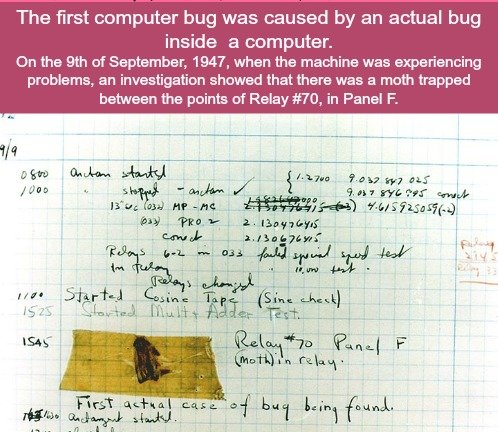 The first computer bug was caused by an actual bug
inside a computer.
On the 9th of September, 1947, when the machine was experiencing
problems, an investigation showed that there was a moth trapped
between the points of Relay #70, in Panel F.
9/9
0800 antan started
1000 " stopped - antan ✓ { 1.2700 9.037 847 025
9.037 846 995 correct
13"uc (032) MP - MC 4.615925059(-2)
(033) PRO 2 2.130476415
correct 2.130676415
Relays 6-2 in 033 failed special speed test
in relay 10,000 test.
Relays changed
1100 Started Cosine Tape (Sine check)
1525 Started Mult + Adder Test.
1545 Relay #70 Panel F
(moth) in relay.
First actual case of bug being found.
1630 antangent started.